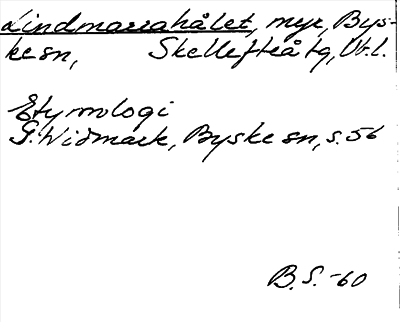 Lindmarrahålet, myr, Bys-
ke sn, Skellefteå tg, Vb.l.
Etymologi
G. Widmark, Byske sn, s. 56
B.S. -60